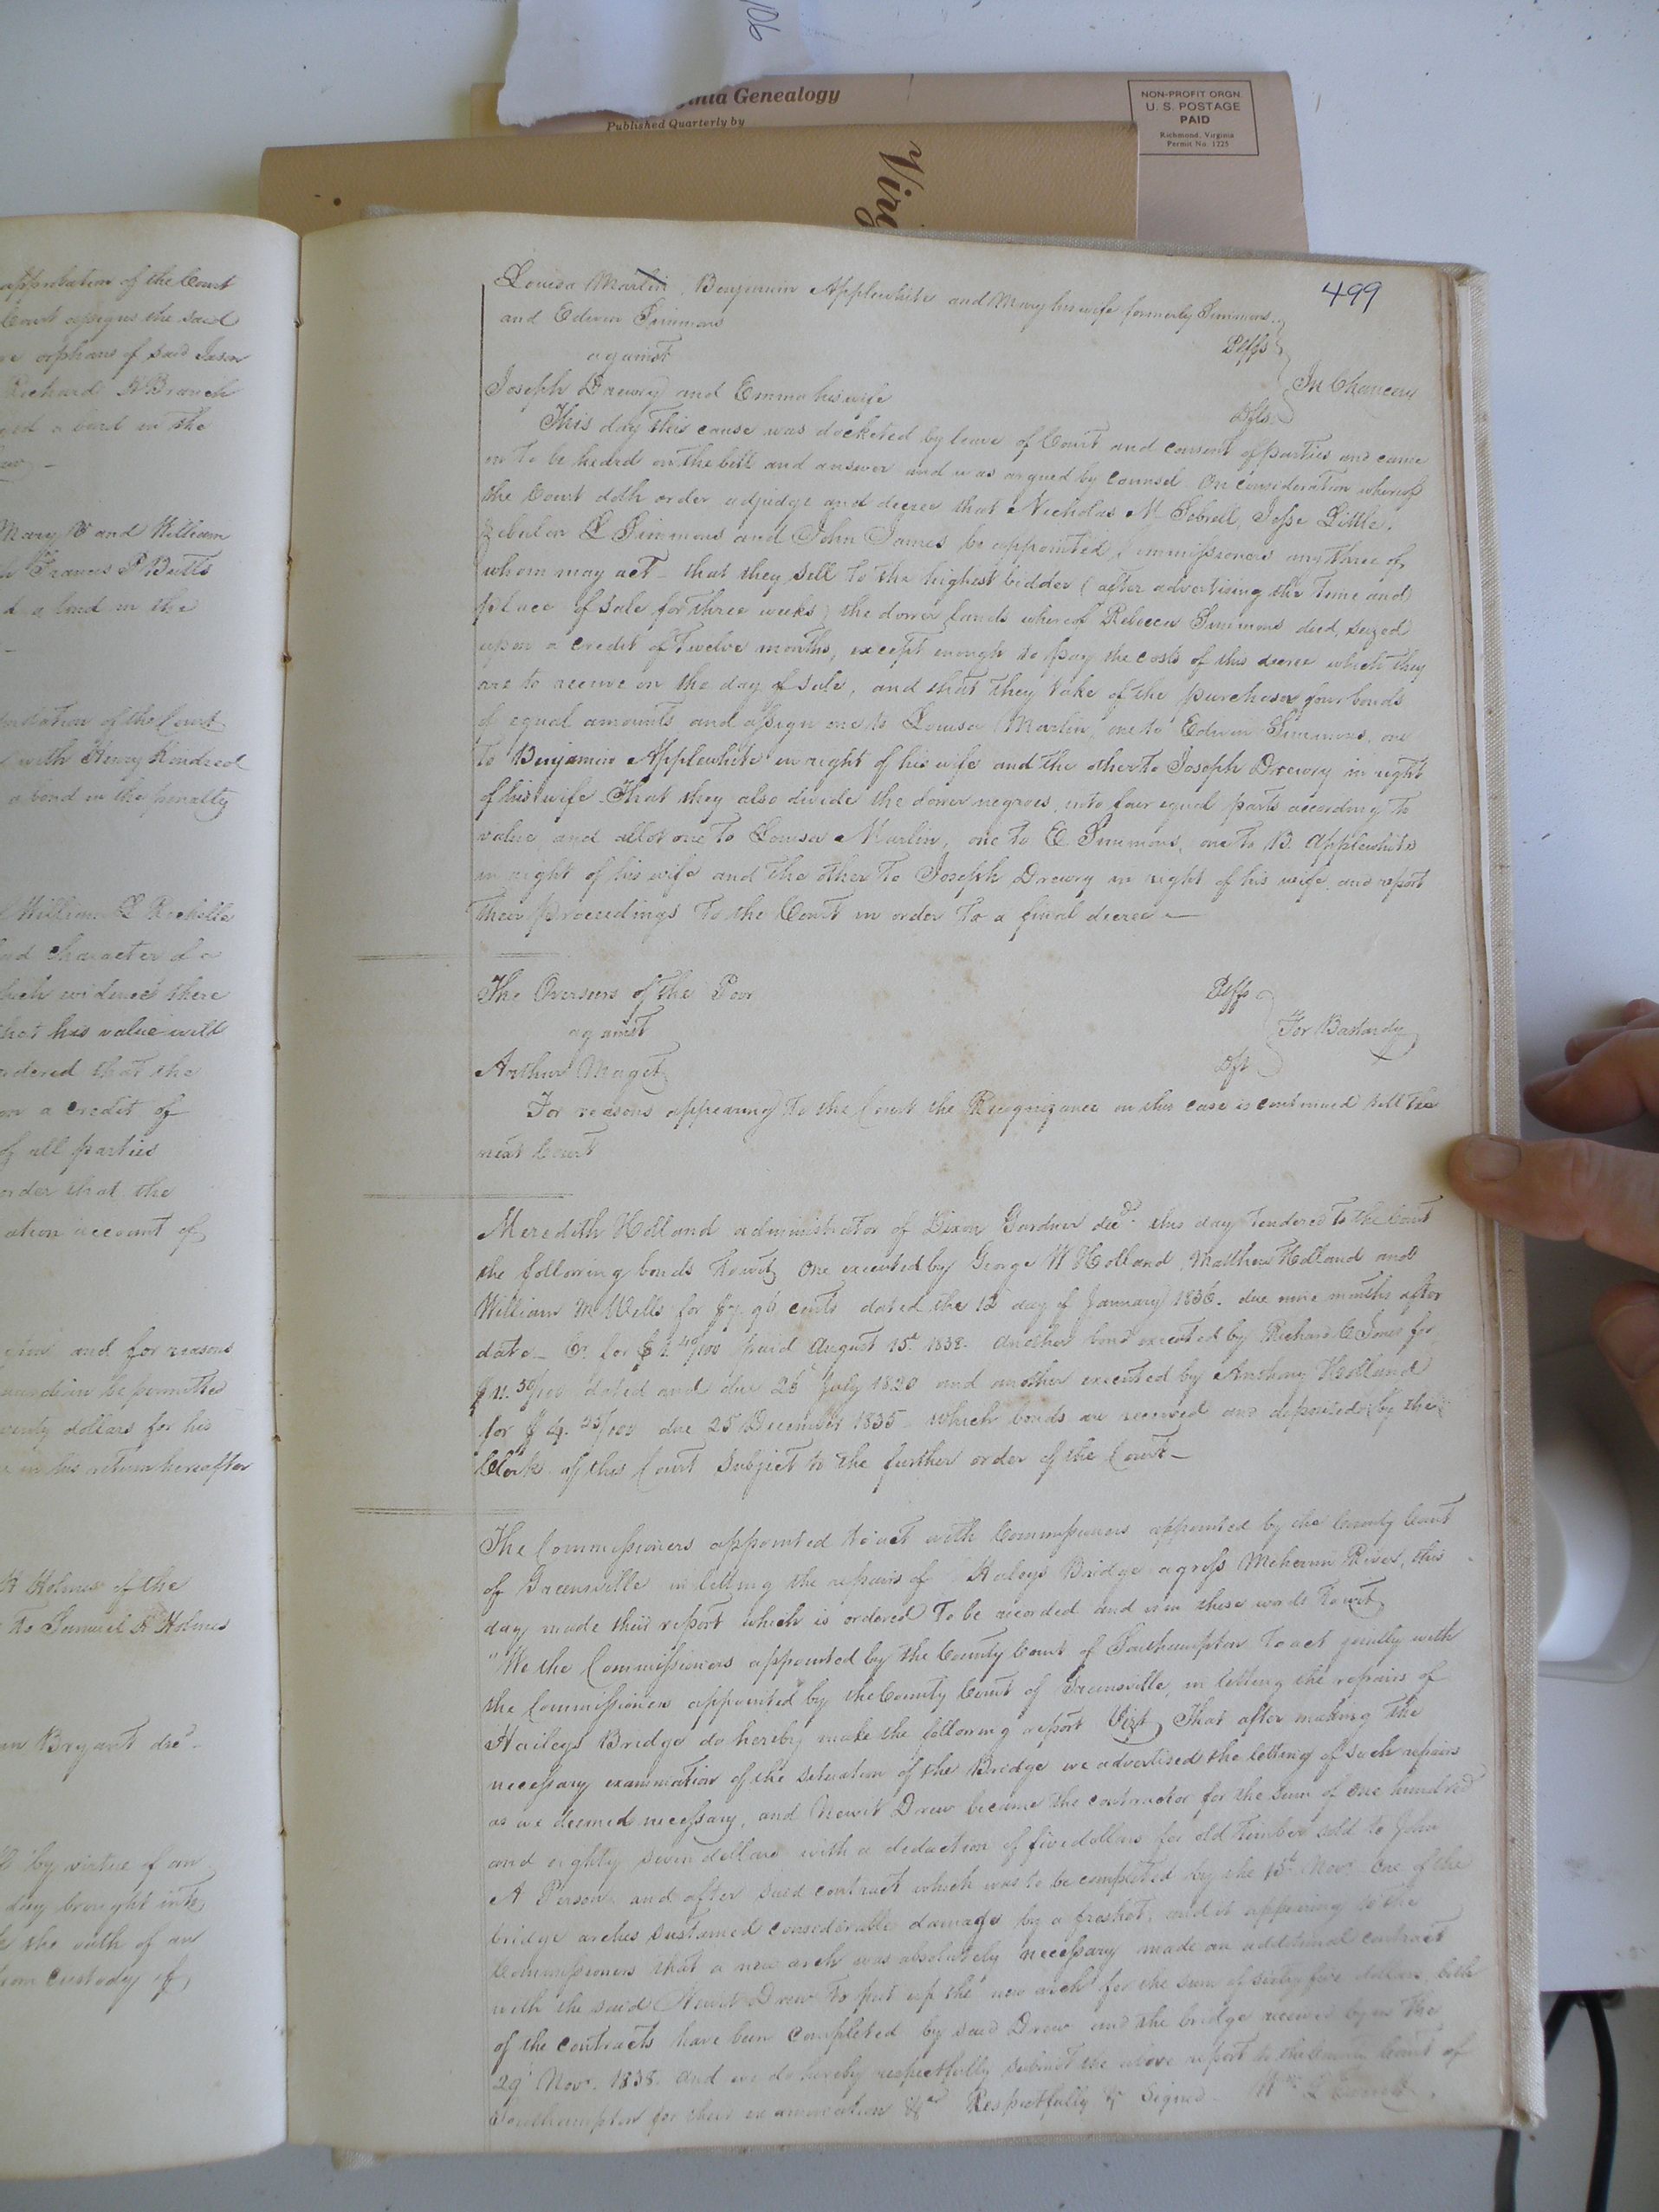 90
Virginia Genealogy
Published Quarterly by
NON-PROFIT ORGN.
U. S. POSTAGE
PAID
Richmond, Virginia
Permit No. 1225
Virg
approbation of the Court
Court assigns the said
orphans of said Jason
Richard H Branch
a bond in the
Mary and William
Frances P Butts
a bond in the
of the Court
with Henry Kindred
a bond in the penalty
William L Rochelle
and Character of a
which evidence there
that his value will
ordered that the
on a credit of
of all parties
order that the
ation account of
and for reasons
be permitted
twenty dollars for his
in his return hereafter
H Holmes of the
to Samuel H Holmes
Bryant decd
by virtue of an
day brought into
the oath of an
from custody of
499
Louisa Marlin, Benjamin Applewhite and Mary his wife formerly Simmons
and Edwin Simmons
Pltffs
against
In Chancery
Joseph Drewry and Emma his wife
Dfts
This day this cause was docketed by leave of Court and consent of parties and came
on to be heard on the bill and answer and was argued by counsel On consideration whereof
the Court doth order adjudge and decree that Nicholas M Sebrell, Jesse Little,
Zebulon L Simmons and John James be appointed Commissioners any three of
whom may act – that they sell to the highest bidder (after advertising the time and
place of sale for three weeks) the dower lands whereof Rebecca Simmons died, seized
upon a credit of twelve months, except enough to pay the costs of this decree which they
are to receive on the day of sale, and that they take of the purchaser four bonds
of equal amounts and assign one to Louisa Marlin, one to Edwin Simmons, one
to Benjamin Applewhite in right of his wife and the other to Joseph Drewry in right
of his wife – That they also divide the dower negroes into four equal parts according to
value and allot one to Louisa Marlin, one to E Simmons, one to B. Applewhite
in right of his wife and the other to Joseph Drewry in right of his wife, and report
their proceedings to the Court in order to a final decree –
The Overseers of the Poor
Pltffs
against
For Bastardy
Arthur Maget
Dft
For reasons appearing to the Court the Recognizance in this case is continued till the
next Court
Meredith Holland administrator of Dixon Gardner decd. this day tendered to the Court
the following bonds towit, One executed by George W Holland, Matthew Holland and
William M Wells for $7. 96 cents dated the 12 day of January 1836. due nine months after
date – Cr. for $1.40/100 paid August 15t 1838. another bond executed by Richard C Jones for
$11.50/100 dated and due 26 July 1820 and another executed by Anthony Holland
for $4.25/100 due 25 December 1835 – which bonds are received and deposited by the
Clerk of this Court subject to the further order of the Court –
The Commissioners appointed to act with Commissioners appointed by the County Court
of Greensville in letting the repairs of Haleys Bridge across Meherrin River, this
day made their report which is ordered to be recorded and is in these words towit,
"We the Commissioners appointed by the County Court of Southampton to act jointly with
the Commissioners appointed by the County Court of Greensville, in letting the repairs of
Haileys Bridge do hereby make the following report Vizt, That after making the
necessary examination of the situation of the Bridge we advertised the letting of such repairs
as we deemed necessary, and Newit Drew became the contractor for the sum of one hundred
and eighty seven dollars with a deduction of five dollars for old timber sold to John
A Person and after said contract which was to be completed by the 15t Novr One of the
bridge arches sustained considerable damage by a freshet, and it appearing to the
Commissioners that a new arch was absolutely necessary made an additional contract
with the said Newit Drew to put up the new arch for the sum of sixty five dollars, both
of the contracts have been completed by said Drew and the bridge received by us the
29 Novr. 1838. and we do hereby respectfully submit the above report to the County Court of
Southampton for their examination &c Respectfully &c Signed